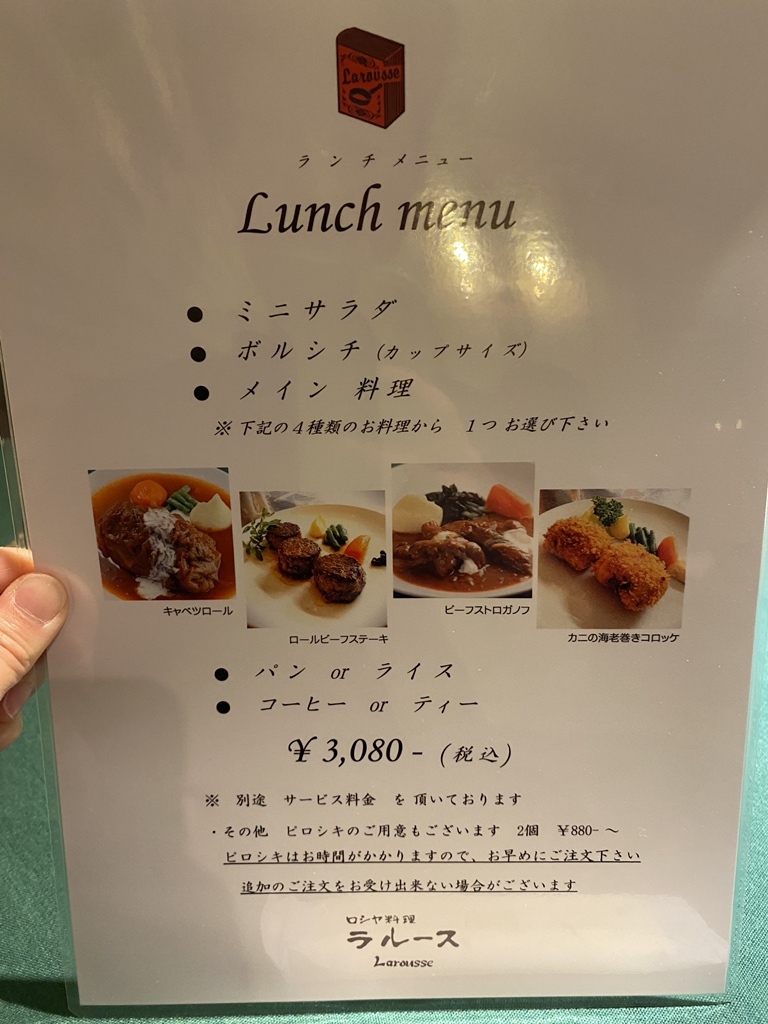 Larousse
ランチメニュー
Lunch menu
● ミニサラダ
● ボルシチ (カップサイズ)
● メイン 料理
※ 下記の4種類のお料理から 1つ お選び下さい
キャベツロール
ロールビーフステーキ
ビーフストロガノフ
カニの海老巻きコロッケ
● パン or ライス
● コーヒー or ティー
¥ 3,080 - (税込)
※ 別途 サービス料金 を 頂いております
・その他 ピロシキのご用意もございます 2個 ¥880- ～
ピロシキはお時間がかかりますので、お早めにご注文下さい
追加のご注文をお受け出来ない場合がございます
ロシヤ料理
ラルース
Larousse